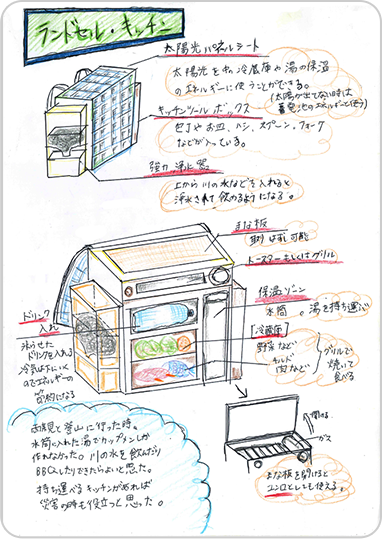 ランドセル・キッチン
太陽光パネルシート
太陽光を中の冷蔵庫や湯の保温
のエネルギーに使うことができる。
(太陽が出てない時は
蓄電池のエネルギーを使う)
キッチンツールボックス
包丁やお皿、ハシ、スプーン、フォーク
などが入っている。
強力浄水器
上から川の水などを入れると
浄水されて飲めるようになる。
まな板
取りはずし可能
トースターもしくはグリル
保温ゾーン
水筒。湯を持ち運ぶ
ドリンク
入れ
氷らせた
ドリンクを入れる
冷気は下にいく
のでエネルギーの
節約になる
「冷蔵庫」
野菜など
チルド
肉など
グリルで
焼いて
食べる
両親と登山に行った時。
水筒に入れた湯でカップラーメンしか
作れなかった。川の水を飲んだり
BBQしたりできたらよいと思った。
持ち運べるキッチンがあれば
災害の時も役立つと思った。
開ける
ガス
まな板を開けると
コンロとしても使える。